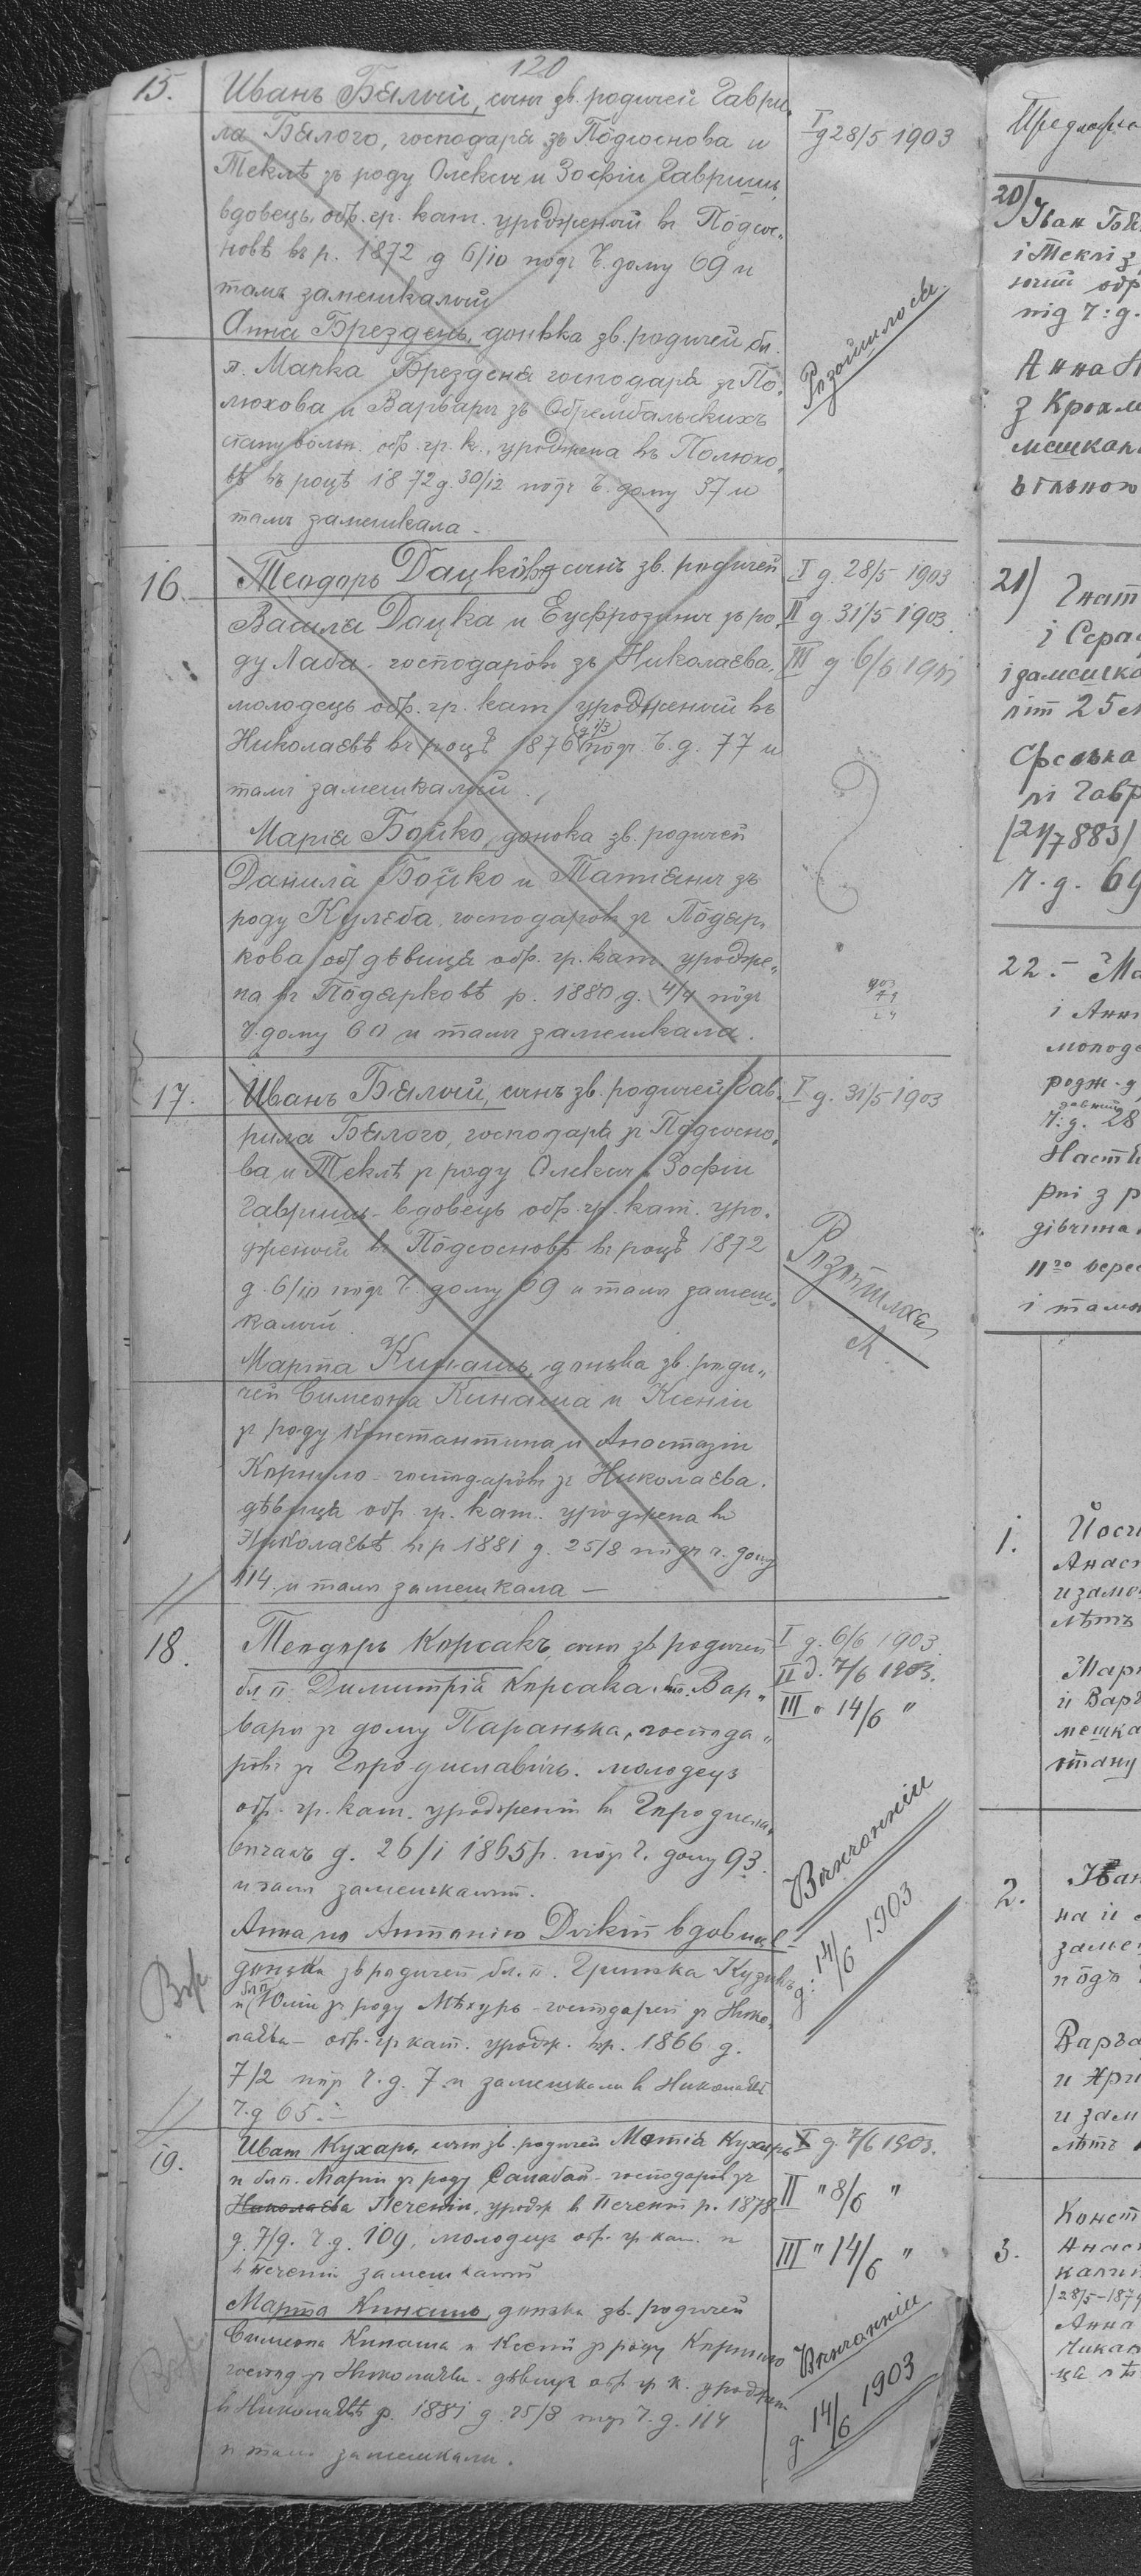 120
15. Иванъ Бѣлый, сынъ зв. родичей Гаври-
ла Бѣлого, господаря зъ Подсоснова и
Теклѣ зъ роду Олексы и Зофіи Гавришъ,
вдовецъ, обр. гр. кат. уродженый въ Подсос-
новѣ въ р. 1872 д 6/10 подъ Ч. дому 69 и
тамъ замешкалый
I д 28/5 1903
Анна Брездень, донька зв. родичей бл.
п. Марка Брезденя господаря зъ По-
люхова и Варвары зъ Обрембальскихъ
стану вольн. обр. гр. к., уроджена въ Полюхо-
вѣ въ роцѣ 1872 д. 30/12 подъ Ч. дому 37 и
тамъ замешкала -
Розойшлося
16. Теодоръ Дацковъ, сынъ зв. родичей
Василя Дацка и Еуфрозины зъ ро-
ду Лаба - господаровъ зъ Николаева,
молодецъ обр. гр. кат уродженый въ
Николаевѣ въ роцѣ 1876 (д 1/3) подъ Ч. д. 77 и
тамъ замешкалый.
I д. 28/5 1903
II д. 31/5 1903
III д 6/6 1903
Марія Бойко, донька зв. родичей
Данила Бойко и Татіаны зъ
роду Кулеба, господаровъ зъ Подяр-
кова дѣвиця обр. гр. кат. уродже-
на въ Подярковѣ р. 1880 д. 4/4 подъ
Ч. дому 60 и тамъ замешкала.
17. Иванъ Бѣлый, сынъ зв. родичей Гав-
рила Бѣлого, господаря зъ Подсосно-
ва и Теклѣ зъ роду Олексы и Зофіи
Гавришъ - вдовецъ обр. гр. кат. уро-
дженый въ Подсосновѣ въ роцѣ 1872
д. 6/10 подъ Ч. дому 69 и тамъ замеш-
калый.
I д. 31/5 1903
Марта Кинашъ, донька зв. роди-
чей Симеона Кинаша и Ксеніи
зъ роду Константина и Анастазіи
Корнило - господаровъ зъ Николаева.
дѣвиця обр. гр. кат. уроджена въ
Николаевѣ въ р 1881 д. 25/8 подъ ч. дому
114 и тамъ замешкала -
Розойшлося
18. Теодоръ Корсакъ, сынъ зв родичей
бл. п. Димитрія Корсака и Вар-
вары зъ дому Паранька, господа-
ровъ зъ Городиславичъ. молодецъ
обр. гр. кат. уродженый въ Городисла-
вичахъ д. 26/1 1865 р. подъ ч. дому 93.
и тамъ замешкалый.
I д. 6/6 1903
II д. 7/6 1903.
III " 14/6 "
Анна по Антонію Dzikiй вдовица -
донька зв родичей бл. п. Гринька Кузик
и бл п Юліи зъ роду Мѣхуръ - господарей зъ Нико-
лаева - обр. гр кат. уродж. въ р. 1866 д.
7/2 подъ ч. д. 7 и замешкала въ Николаевѣ
ч. д 65. -
Вѣнчанніи
д. 14/6 1903
19. Иванъ Кухаръ, сынъ зв. родичей Матія Кухаръ
и бл п. Маріи зъ роду Салабай - господарѣвъ зъ
Николаева Печеніи, уродж въ Печеніи р. 1878
д. 7/9. ч. д. 109, молодецъ обр. гр. кат. и
въ Печеніи замешкалый
I д. 7/6 1903.
II " 8/6 "
III " 14/6 "
Марта Кинашъ, донька зв. родичей
Симеона Кинаша и Ксеніи зъ роду Корнило
господ зъ Николаева - дѣвиця обр. гр к. уроджена
въ Николаевѣ р. 1881 д. 25/8 подъ ч. д. 114
и тамъ замешкала.
Вѣнчанніи
д. 14/6 1903
20) Іван Біл
і Теклі з
під ч: д.
Анна
з Крохм
мешкал
вільного
21) Гнат
і Сера
і замешка
літ 25
Фенька
лі Гавр
(21/7 883)
ч. д. 69
22. - Ма
і Анн
молоде
родж. д
ч: д. 28
Настя
рні з р
дівчина
11го верес
і тамже
1. Йоси
Анаст
и замеш
лѣтъ
Мар
и Вар
мешка
стану
2. Иван
на и
замеш
подъ
Варва
и Хри
и зам
лѣтъ
3. Конст
Анас
калы
(28/5-187
Анна